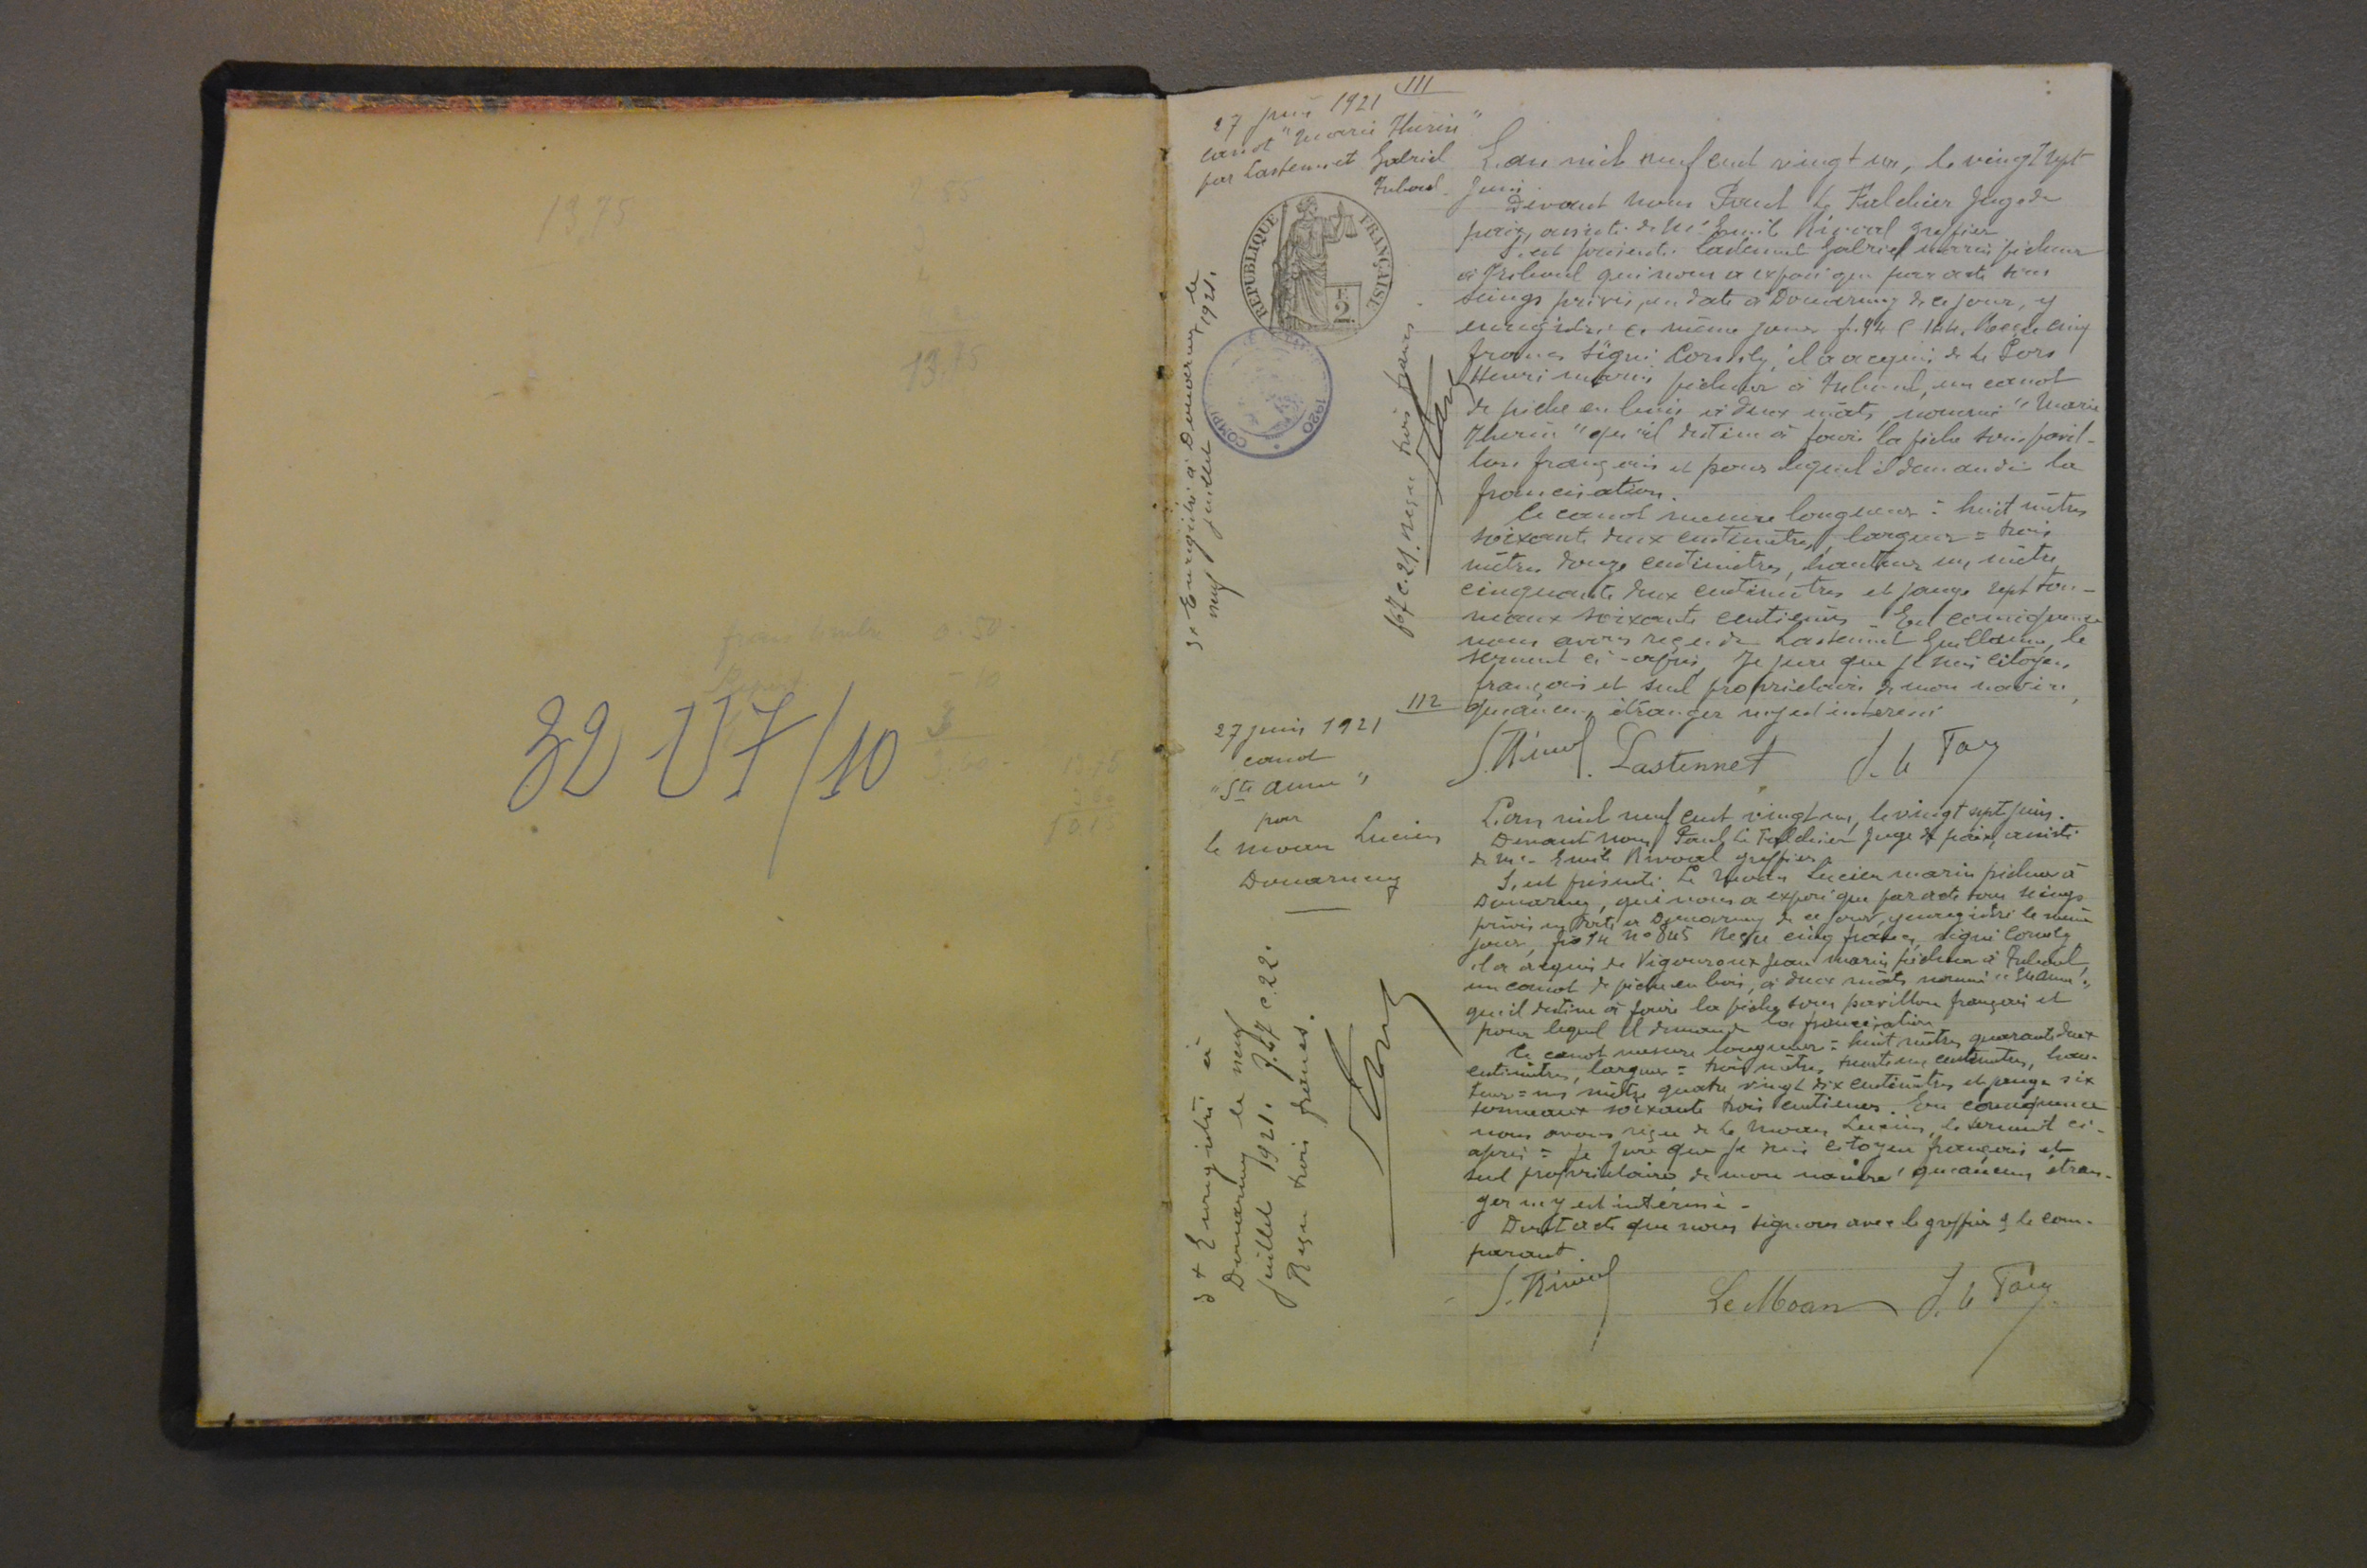 13,75
13,75
frais timbre 0.50
32 U 7/10
111
27 juin 1921
canot "Marie Thérèse"
par Lastennet Gabriel
Tréboul
L'an mil neuf cent vingt un, le vingt sept
Juin.
Devant nous Paul Le Falchier Juge de
paix, assisté de Me Emile Rivoal greffier
S'est présenté Lastennet Gabriel marin pêcheur
à Tréboul qui nous a exposé que par acte sous
seings privés, en date à Douarnenez de ce jour, y
enregistré ce même jour f. 94 C 144. Reçu cinq
francs signé Cornily, il a acquis de Le Gors
Henri marin pêcheur à Tréboul, un canot
de pêche en bois à deux mâts, nommé "Marie
Thérèse" qu'il destine à faire la pêche sous pavil-
lon français et pour lequel il demande la
francisation.
Ce canot mesure longueur : huit mètres
soixante deux centimètres, largeur = trois
mètres douze centimètres, hauteur un mètre
cinquante deux centimètres et jauge sept ton-
neaux soixante centièmes. En conséquence
nous avons reçu de Lastennet Guillaume, le
serment ci-après, Je jure que je suis citoyen
français et seul propriétaire de mon navire,
qu'aucun étranger n'y est intéressé
Lastennet
REPUBLIQUE FRANÇAISE
2
1920
Enregistré à Douarnenez le
neuf juillet 1921.
f 67 c. 21. Reçu trois francs
112
27 juin 1921
canot
"Ste Anne"
par
Le Moan Lucien
Douarnenez
L'an mil neuf cent vingt un, le vingt sept juin.
Devant nous Paul Le Falchier Juge de paix, assisté
de Me Emile Rivoal greffier
S'est présenté Le Moan Lucien marin pêcheur à
Douarnenez, qui nous a exposé que par acte sous seings
privés en date à Douarnenez de ce jour, y enregistré le même
jour, fo 94 no 845 Reçu cinq francs, signé Cornily
il a acquis de Vigouroux Jean marin pêcheur à Tréboul,
un canot de pêche en bois, à deux mâts nommé "Ste Anne",
qu'il destine à faire la pêche sous pavillon français et
pour lequel il demande la francisation
Ce canot mesure longueur = huit mètres quarante deux
centimètres, largeur = trois mètres trente un centimètres, hau-
teur = un mètre quatre vingt dix centimètres et jauge six
tonneaux soixante trois centièmes. En conséquence
nous avons reçu de Le Moan Lucien, le serment ci-
après = Je jure que je suis citoyen français et
seul propriétaire de mon navire, qu'aucun étran-
ger n'y est intéressé -
Dont acte que nous signons avec le greffier & le com-
parant.
Le Moan
Enregistré à
Douarnenez le neuf
juillet 1921. f. 67 c. 22.
Reçu trois francs.